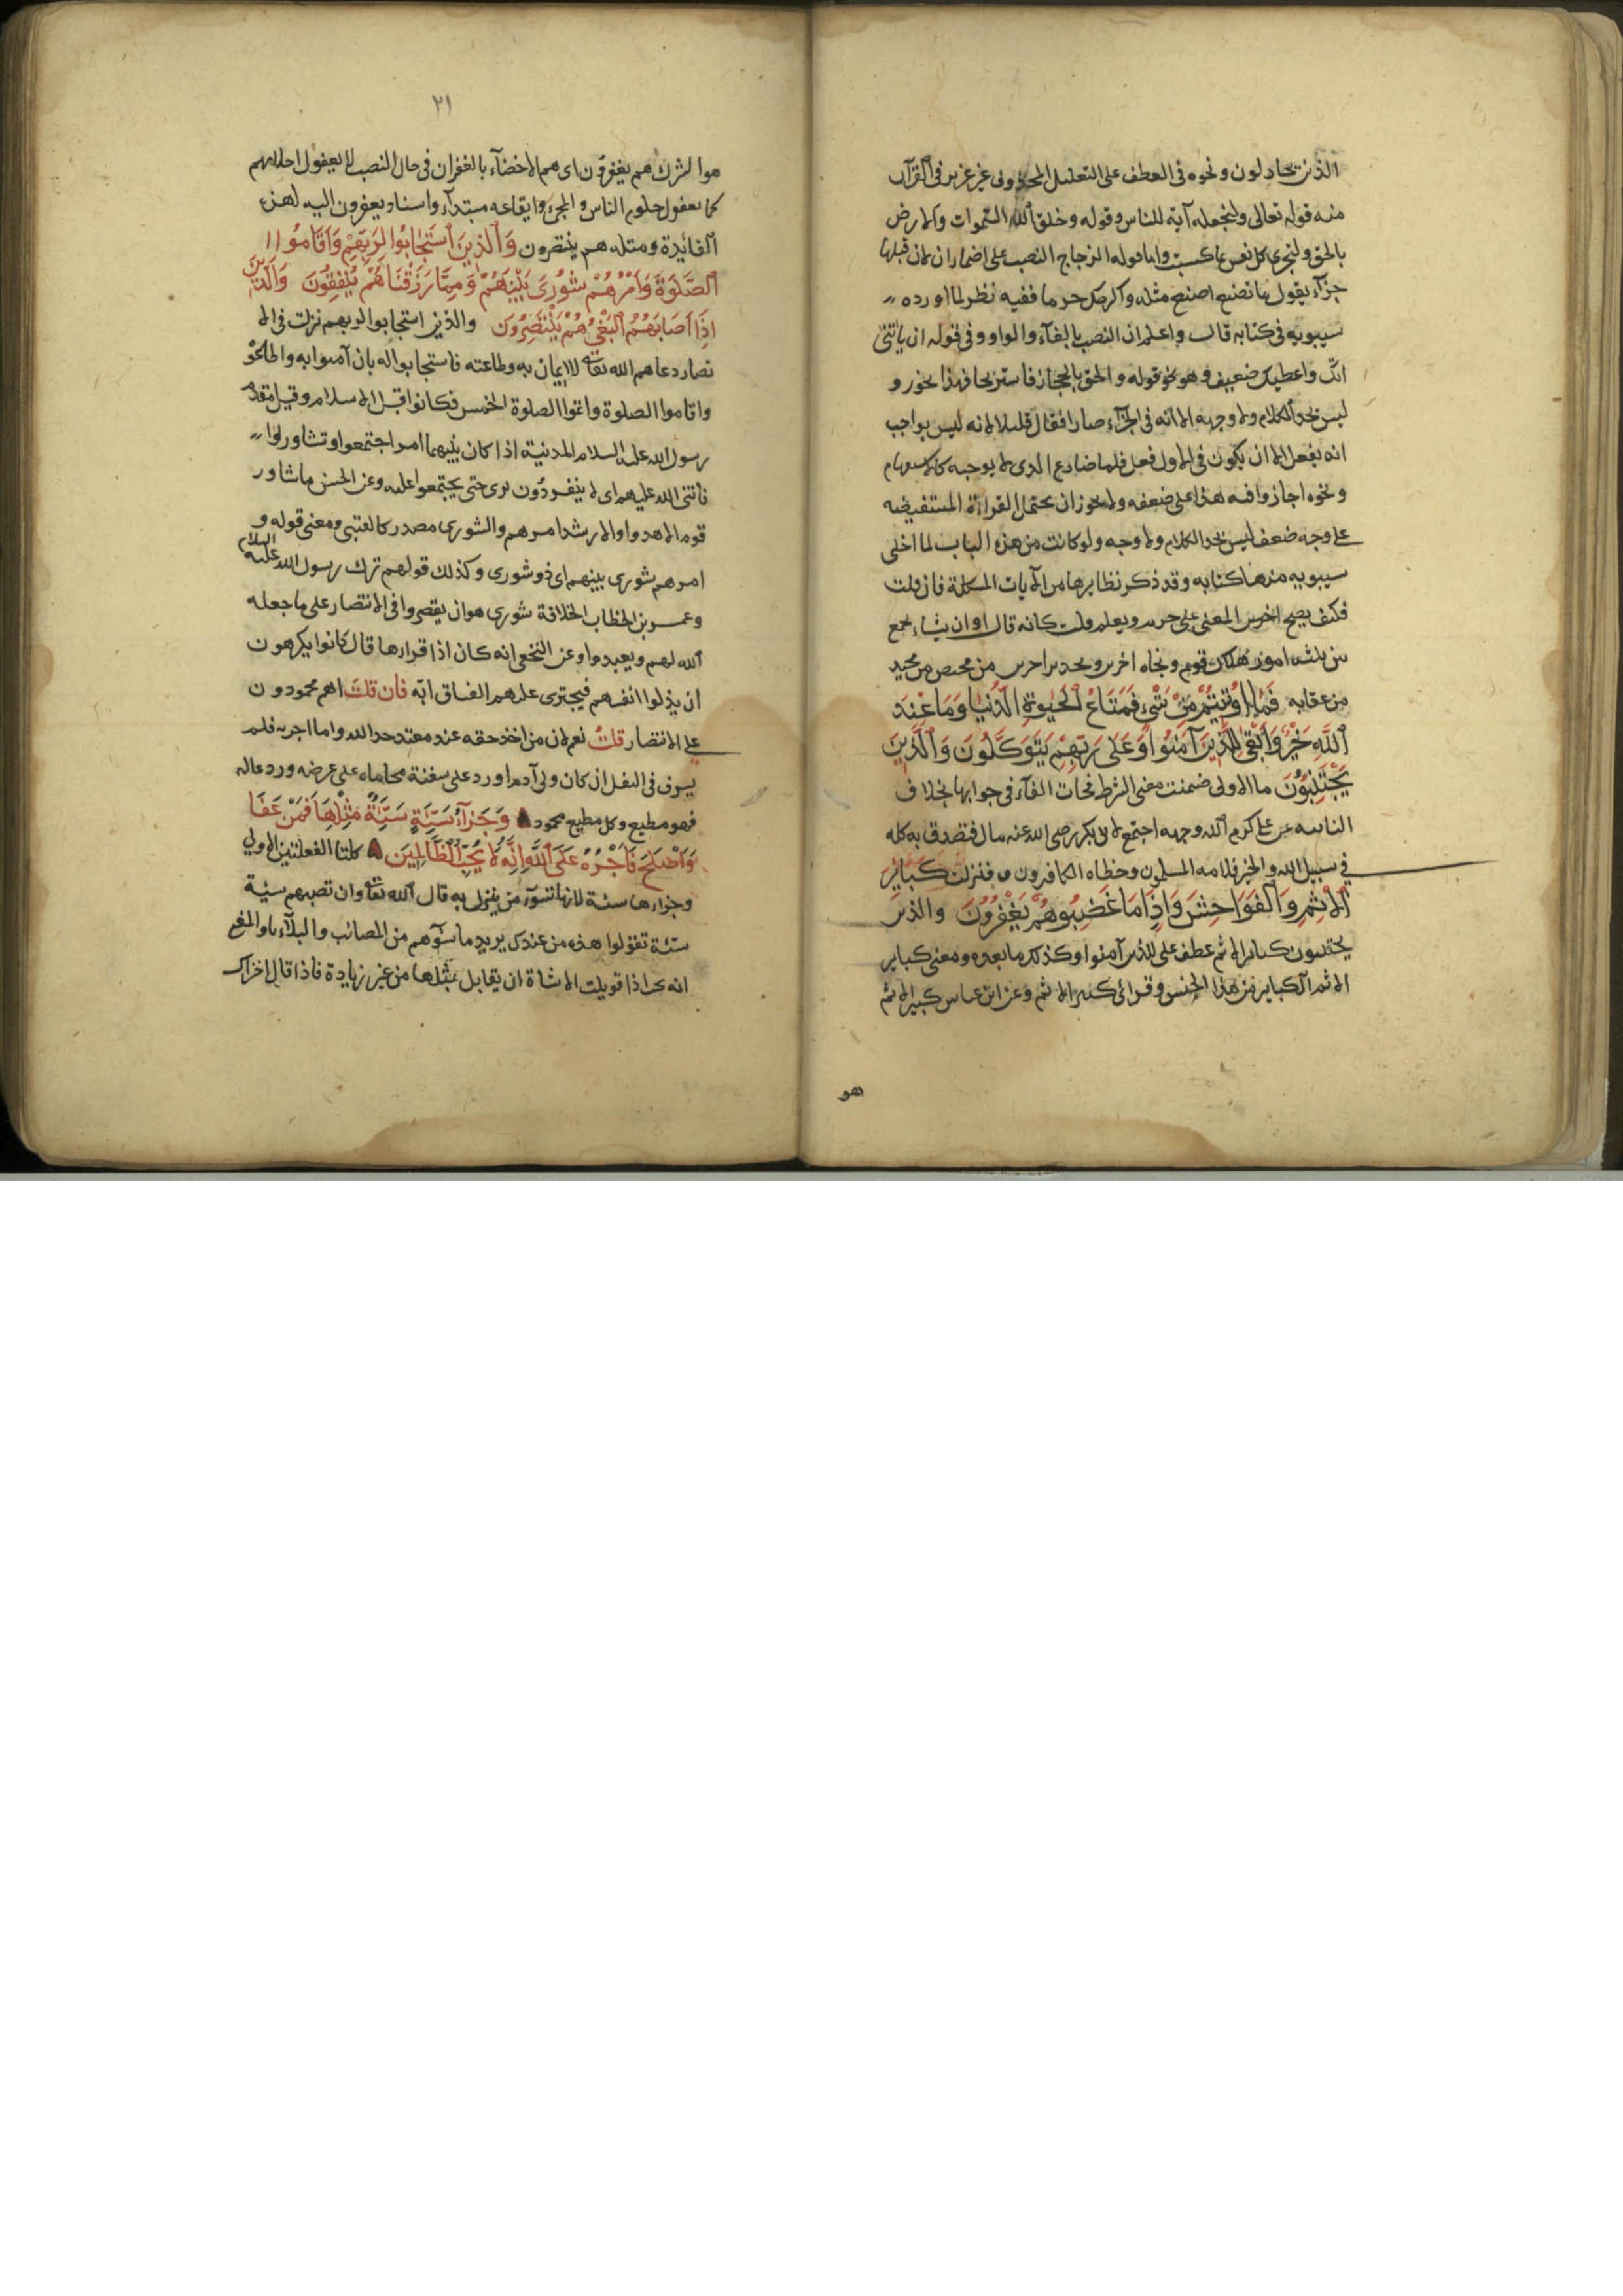 الذين يجادلون ونحوه في العطف على التعليل المحذوف غير عزيز في القرآن
منه قوله تعالى ولنجعله آية للناس وقوله وخلق الله السموات والارض
بالحق ولتجزى كل نفس بما كسبت واما قوله الزجاج النصب على اضمار ان لان قبلها
جزآء يقول ما تصنع اصنع مثله واكرمك حر ما ففيه نظر لما اورده
سيبويه في كتابه قال واعلم ان النصب بالفآء والواو وفي قوله ان ياتني
آتك واعطيك ضعيف وهو نحو قوله والحق بالحجاز فاستريحا فهذا يجوز و
ليس بحد الكلام ولا وجهه الا انه في الجزآء صار افقال قليلا لانه ليس بواجب
انه يفعل الا ان يكون في الاول فعل فلما ضارع الذى لا يوجبه كالاستفهام
ونحوه اجازوا فيه هذا على ضعفه ولا يجوز ان تحتمل القراءة المستفيضه
على وجه ضعف ليس بحد الكلام ولا وجه ولو كانت من هذه الباب لما اخلى
سيبويه منها كتابه وقد ذكر نظايرها من الآيات المشكلة فان قلت
فكيف يصح المعنى على جزم ويعلم قلت كانه قال او ان يشاء يجمع
بين ثلثه امور هلاك قوم ونجاه اخرين وتحذير اخرين من محيص من محيد
من عقابه فَمَا اُوتِيتُمْ مِنْ شَىْءٍ فَمَتَاعُ الْحَيٰوةِ الدُّنْيَا وَمَا عِنْدَ
اللَّهِ خَيْرٌ وَاَبْقَى لِلَّذِينَ آمَنُوا وَعَلَى رَبِّهِمْ يَتَوَكَّلُونَ وَالَّذِينَ
يَجْتَنِبُونَ ما الاولى ضمنت معنى الشرط فجات الفآء في جوابها بخلاف
الثانيه عن على كرم الله وجهه اجتمع لابى بكر رضى الله عنه مال فتصدق به كله
في سبيل الله والخير فلامه المسلمون وخطاه الكافرون فنزلت كَبَائِرَ
الْاِثْمِ وَالْفَوَاحِشَ وَاِذَا مَا غَضِبُوا هُمْ يَغْفِرُونَ والذين
يجتنبون كبائر الاثم عطف على للذين آمنوا وكذلك ما بعده ومعنى كباير
الاثم الكباير من هذا الجنس وقرائ كبير الاثم وعن ابن عباس كبير الاثم
هو
٢١
هو الشرك هم يغفرون اى هم الاخصآء بالغفران في حال الغضب لا يعفول احلامهم
كما يعفول حلوم الناس والمجئ وايقاعه مبتدآء واسناد يغفرون اليه لهذه
الفائدة ومثله هم ينتصرون وَالَّذِينَ اسْتَجَابُوا لِرَبِّهِمْ وَاَقَامُوا
الصَّلٰوةَ وَاَمْرُهُمْ شُورَى بَيْنَهُمْ وَمِمَّا رَزَقْنَاهُمْ يُنْفِقُونَ وَالَّذِينَ
اِذَا اَصَابَهُمُ الْبَغْىُ هُمْ يَنْتَصِرُونَ والذين استجابوا لربهم نزلت في الا
نصار دعاهم الله تعالى للايمان به وطاعته فاستجابوا له بان آمنوا به واطاعوه
واقاموا الصلوة واتموا الصلوة الخمس فكانوا قبل الاسلام وقيل مقدم
رسول الله عليه السلام المدينة اذا كان بينهما امر اجتمعوا وتشاوروا
فاثنى الله عليهم اى لا ينفردون برى حتى يجتمعوا عليه وعن الحسن ما شاور
قوم الا هدوا والارشد امرهم والشورى مصدر كالفتيى ومعنى قوله و
امرهم شورى بينهم اى ذو شورى وكذلك قولهم ترك رسول الله عليه السلام
وعمر بن الخطاب الخلافة شورى هو ان يقصروا في الانتصار على ما جعله
الله لهم ويعبدوا وعن النخعى انه كان اذا قرارها قال كانوا يكرهون
ان يذلوا انفسهم فيجترى عليهم الفساق ابه فان قلت اهم محمودون
على الانتصار قلت نعم لان من اخذ حقه عند معتد حد الله واما اجر به فلم
يسرف في القتل ان كان ولى آدم او رد على سفنة محاماه على عرضه ورد عاله
فهو مطيع وكل مطيع محمود وَجَزَآءُ سَيِّئَةٍ سَيِّئَةٌ مِثْلُهَا فَمَنْ عَفَا
وَاَصْلَحَ فَاَجْرُهُ عَلَى اللَّهِ اِنَّهُ لَا يُحِبُّ الظَّالِمِينَ كلتا الفعلتين الاولي
وجزاءها سيئة لانها تسوء من ينزل به قال الله تعالى وان تصبهم سيئة
سيئة تقولوا هذه من عندك يريد ما يسوءهم من المصائب والبلآء والمعنى
انه يجب اذا قوبلت الاساءة ان يقابل بمثلها من غير زيادة فاذا قال اخزاك